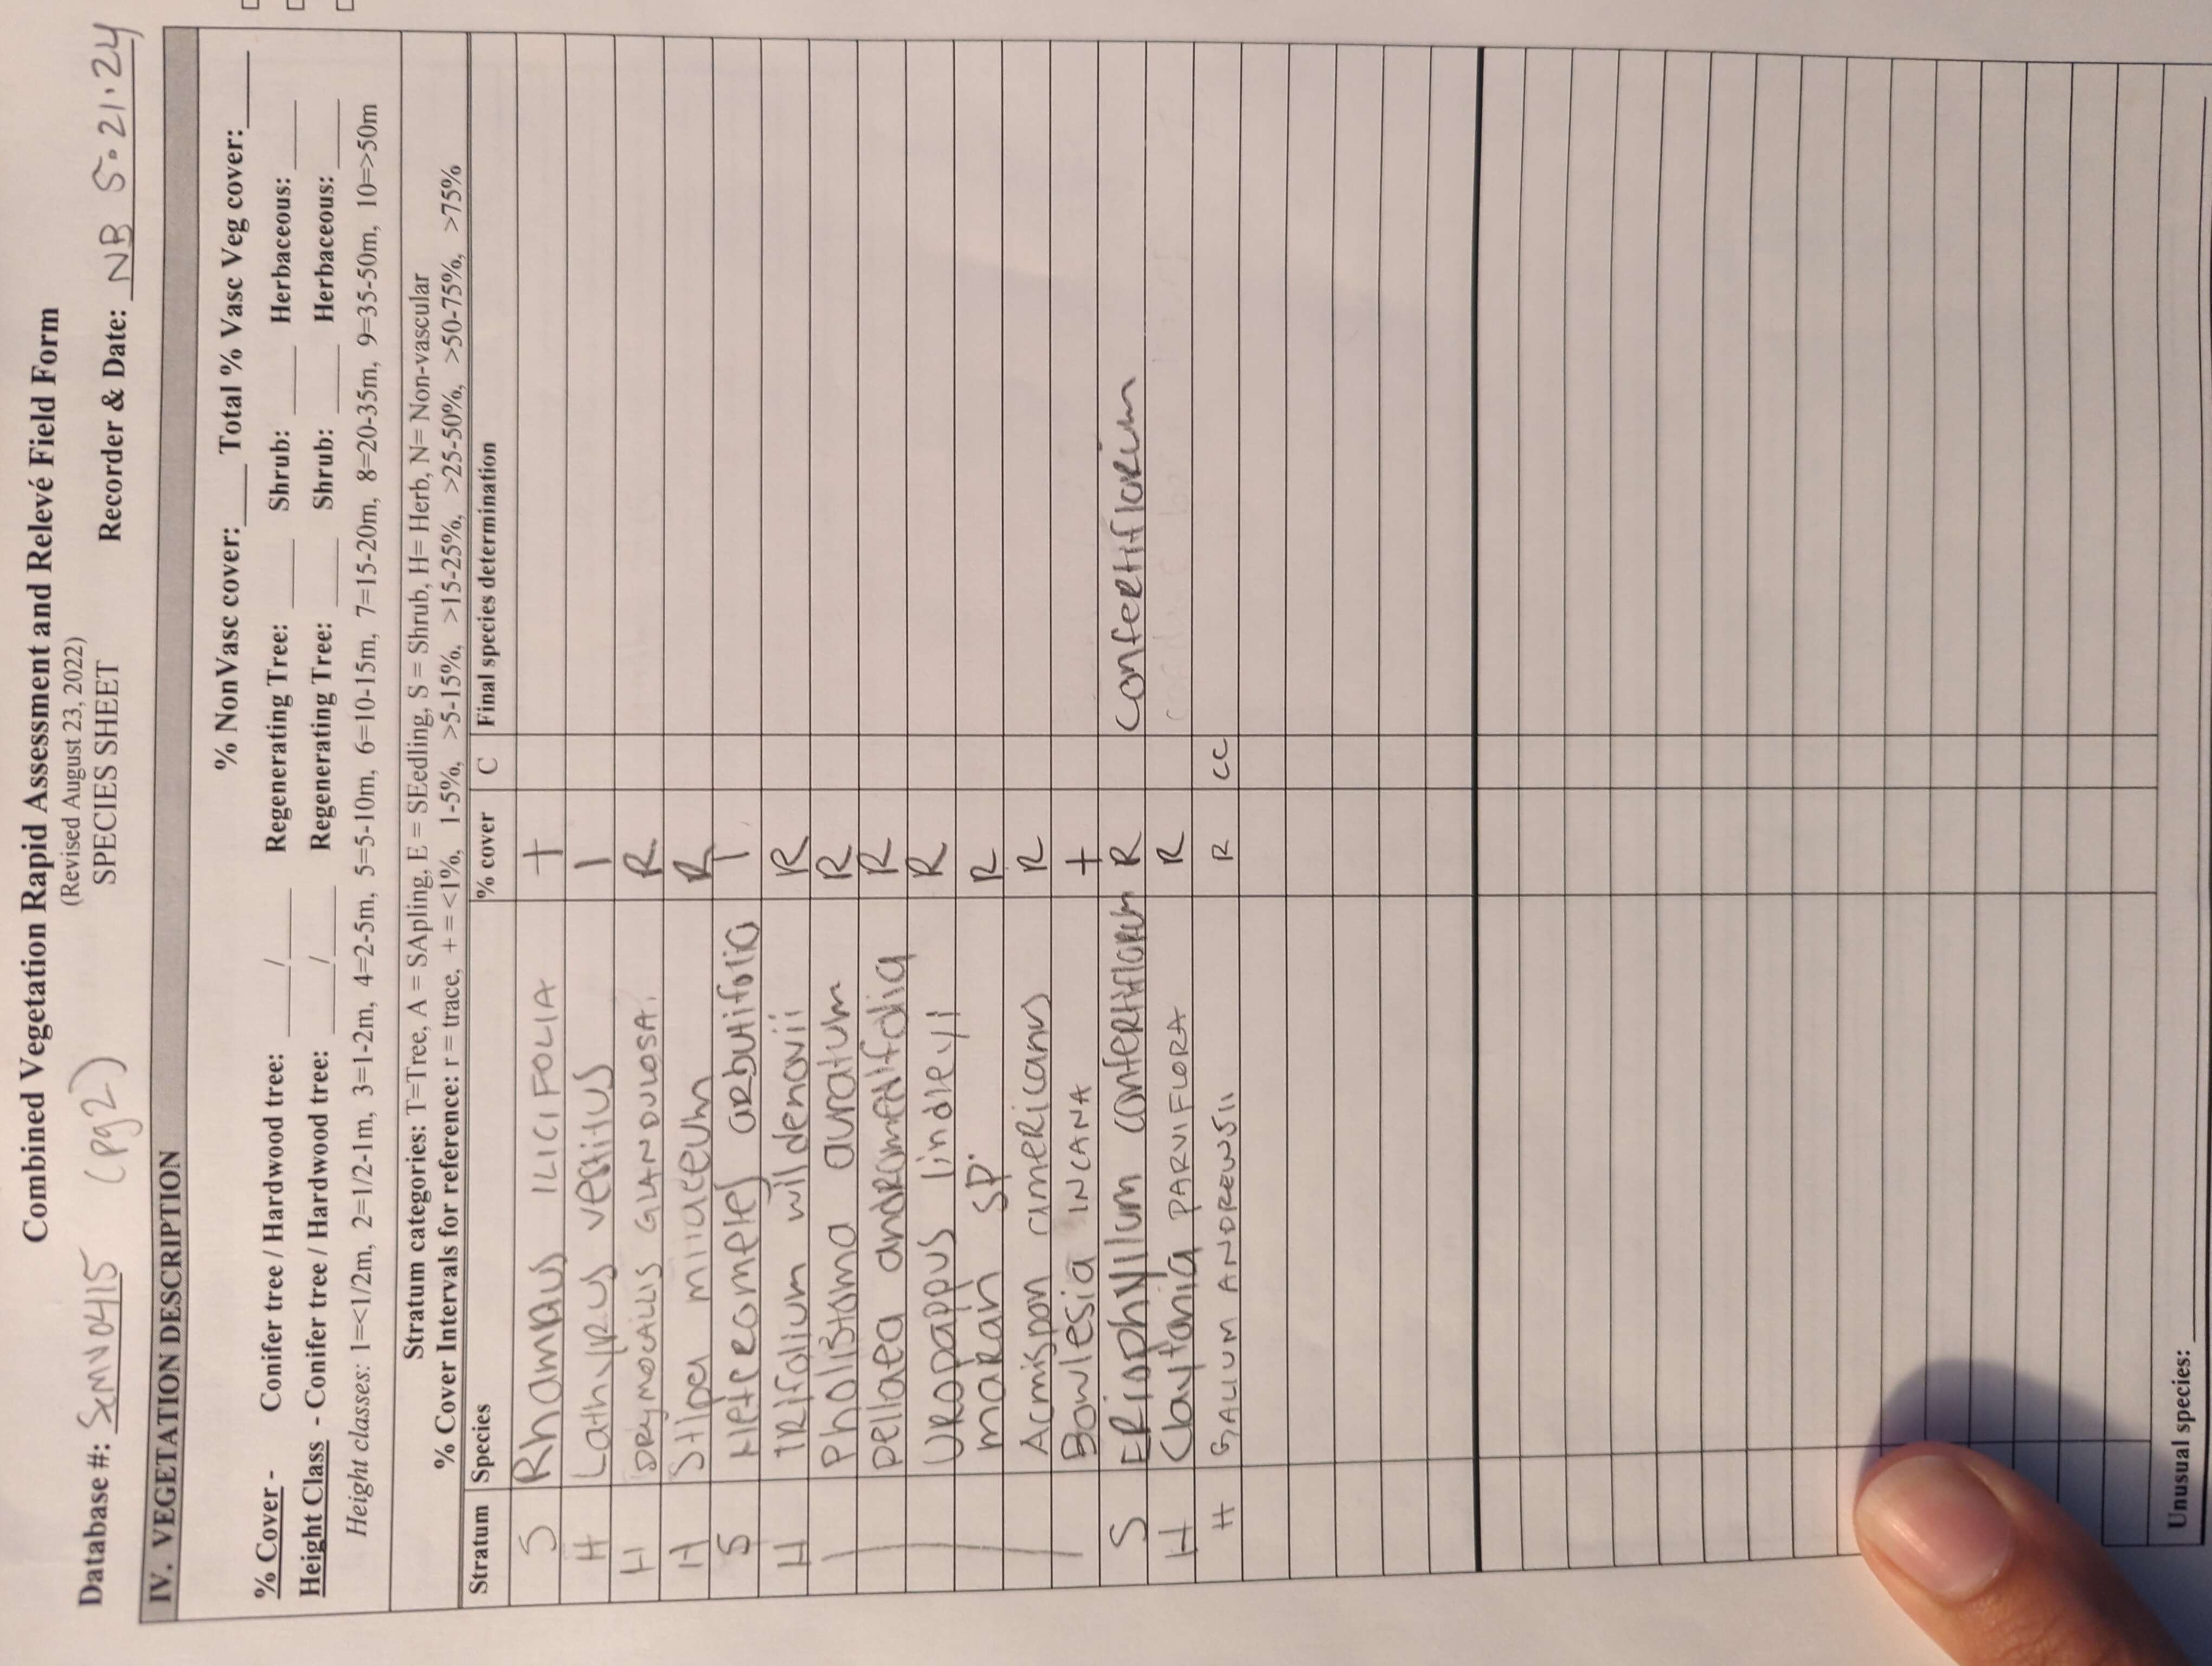 Combined Vegetation Rapid Assessment and Relevé Field Form
(Revised August 23, 2022)
SPECIES SHEET
Database #: SMNV0415 (pg2) Recorder & Date: NB 5.21.24
IV. VEGETATION DESCRIPTION
% NonVasc cover:____ Total % Vasc Veg cover:____
% Cover - Conifer tree / Hardwood tree: ____/____ Regenerating Tree: ____ Shrub: ____ Herbaceous: ____
Height Class - Conifer tree / Hardwood tree: ____/____ Regenerating Tree: ____ Shrub: ____ Herbaceous: ____
Height classes: 1=<1/2m, 2=1/2-1m, 3=1-2m, 4=2-5m, 5=5-10m, 6=10-15m, 7=15-20m, 8=20-35m, 9=35-50m, 10=>50m
Stratum categories: T=Tree, A = SApling, E = SEedling, S = Shrub, H= Herb, N= Non-vascular
% Cover Intervals for reference: r = trace, + = <1%, 1-5%, >5-15%, >15-25%, >25-50%, >50-75%, >75%
Stratum Species % cover C Final species determination
S Rhamnus ILICIFOLIA +
H Lathyrus vestitus 1
H DRYMOCALLIS GLANDULOSA. R
H Stipa miliaceum R
S Heteromeles arbutifolia 1
H TRifolium wildenovii R
Pholistoma auratum R
pellaea andromedifolia R
UROpappus lindleyi R
marah sp. R
Acmispon americanus R
Bowlesia INCANA +
S ERiophyllum confertiflorum R confertiflorum
H Claytonia PARVIFLORA R
H GALIUM ANDREWSII R CC
Unusual species: ____